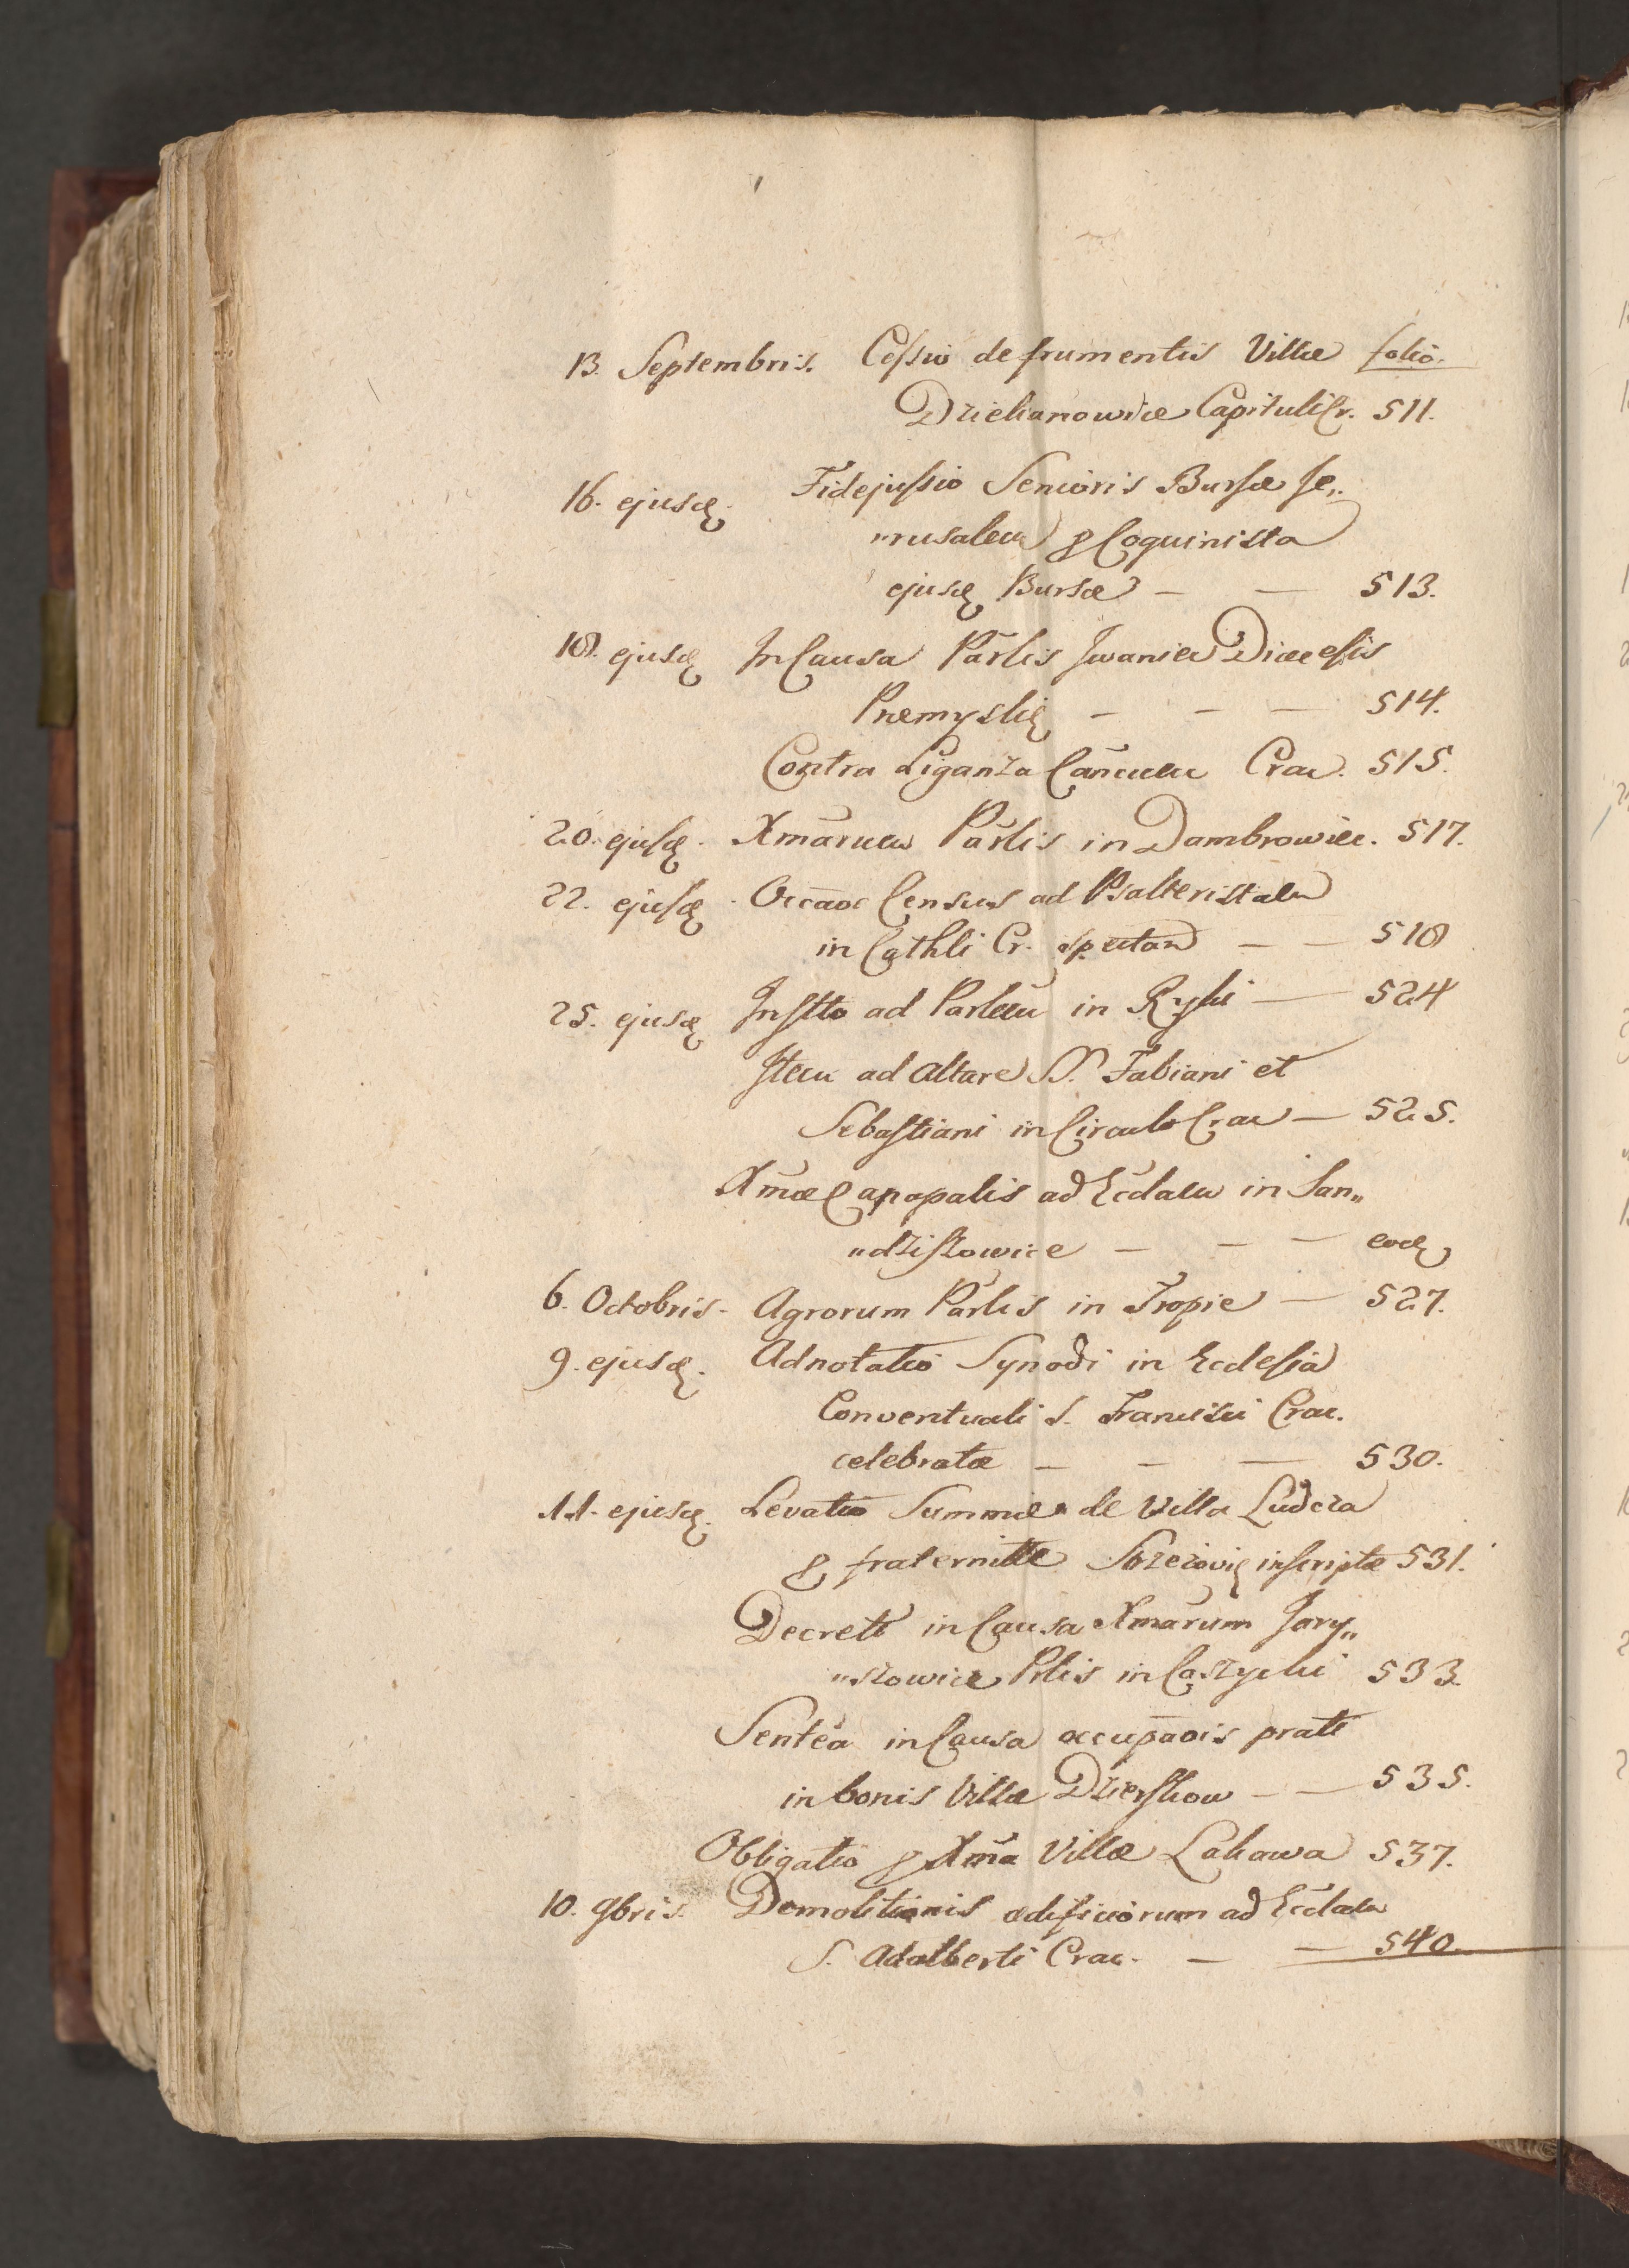 13. Septembris. Cessio de frumentis Villæ folio.
Dziekanowice Capituli Cr. 511.
16. ejusdę. Fidejussio Senioris Bursæ Je„
„rusalem p Coquinista
ejusdę Bursæ — — 513.
18. ejusdę In Causa Parlis Iwaniec Diæcesis
Premyslię — — — 514.
Contra Liganza Cancuem Crac. 515.
20. ejusdę. Xmarum Parlis in Dambrowiec. 517.
22. ejusdę. Occaõe Census ad Psalteristalem
in Cathli Cr. spectan — — 518
25. ejusdę Instto ad Parlem in Rysie — 524
Item ad Altare SS. Fabiani et
Sebastiani in Circulo Crac — 525.
Xmæ Canapalis ad Ecclam in San„
„dziszowice — — — eodę
6. Octobris. Agrorum Parlis in Tropie — 527.
9. ejusdę. Adnotatio Synodi in Ecclesia
Conventuali S. Francisci Crac.
celebratæ — — — 530.
11. ejusdę. Levatio Summæ de Villa Ludcza
p fraternitte inscriptæ 531.
Decreti in Causa Xmarum Jary„
„szowice Prlis in 533.
Sentẽa in Causa occupãois prati
in bonis Villæ — — 535.
Obligatio p Xma Villæ Lakawa 537.
10. 9bris. Demolitionis ædificiorum ad Ecclam
S. Adalberti Crac. — — 540.